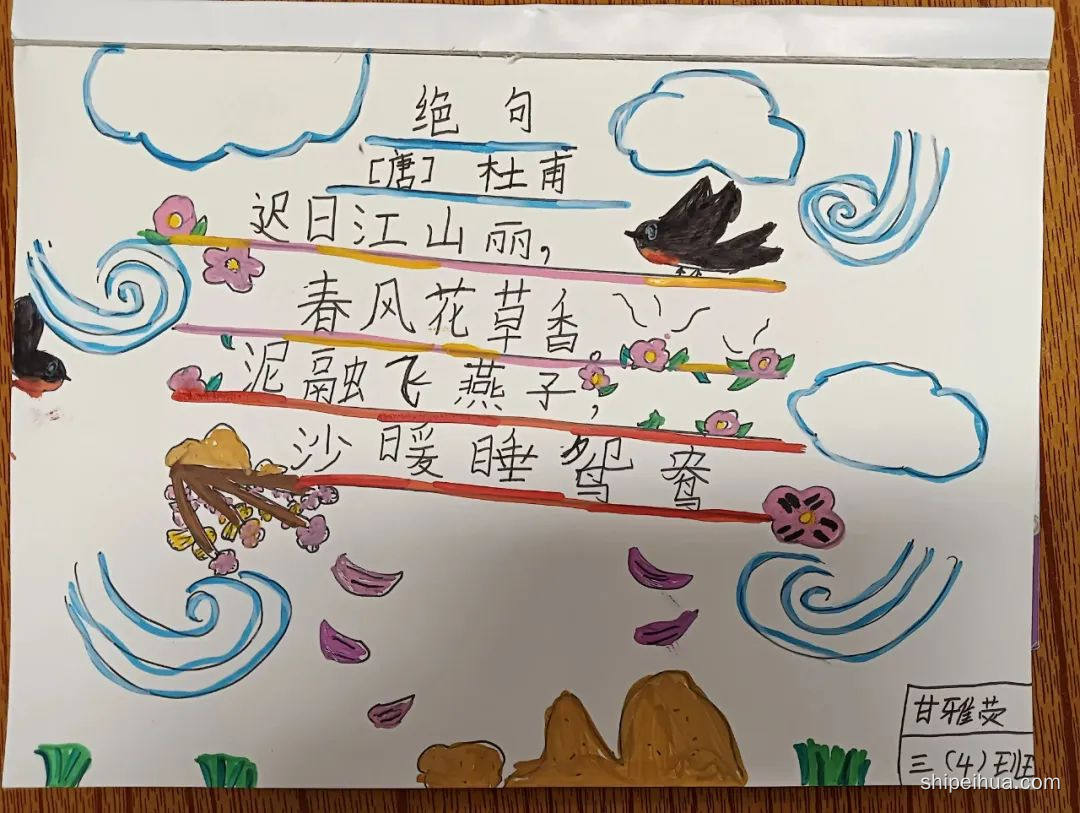 绝句
[唐] 杜甫
迟日江山丽,
春风花草香。
泥融飞燕子,
沙暖睡鸳鸯
甘雅荧
三(4)班
shipeihua.com